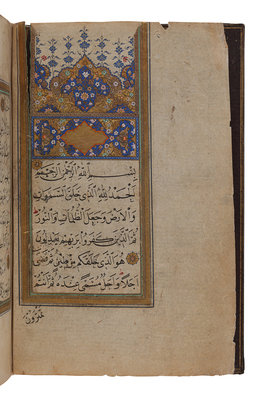 بِسْمِ اللّٰهِ الرَّحْمٰنِ الرَّحِيمِ
الْحَمْدُ لِلّٰهِ الَّذِي خَلَقَ السَّمٰوَاتِ
وَالْاَرْضَ وَجَعَلَ الظُّلُمَاتِ وَالنُّورَ
ثُمَّ الَّذِينَ كَفَرُوا بِرَبِّهِمْ يَعْدِلُونَ
هُوَ الَّذِي خَلَقَكُمْ مِنْ طِينٍ ثُمَّ قَضٰى
اَجَلًا وَاَجَلٌ مُسَمًّى عِنْدَهُ ثُمَّ اَنْتُمْ
تَمْتَرُونَ